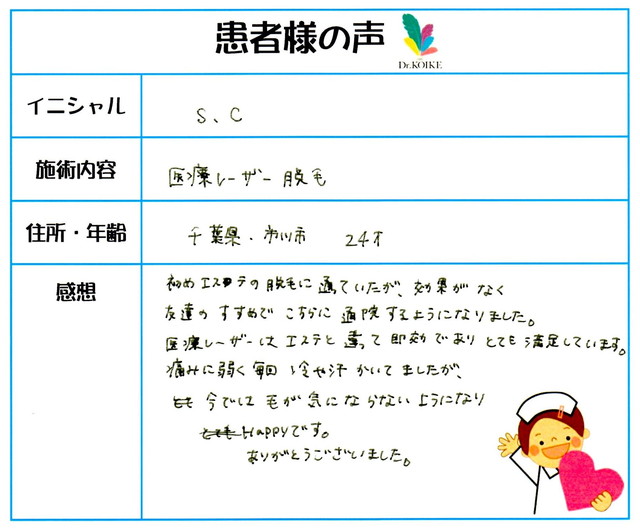 患者様の声
Dr.KOIKE
イニシャル
S、C
施術内容
医療レーザー脱毛
住所・年齢
千葉県・市川市 24才
感想
初めエステの脱毛に通っていたが、効果がなく
友達のすすめでこちらに通院するようになりました。
医療レーザーはエステと違って即効でありとても満足しています。
痛みに弱く毎回冷や汗かいてましたが、
今では毛が気にならないようになり
Happyです。
ありがとうございました。